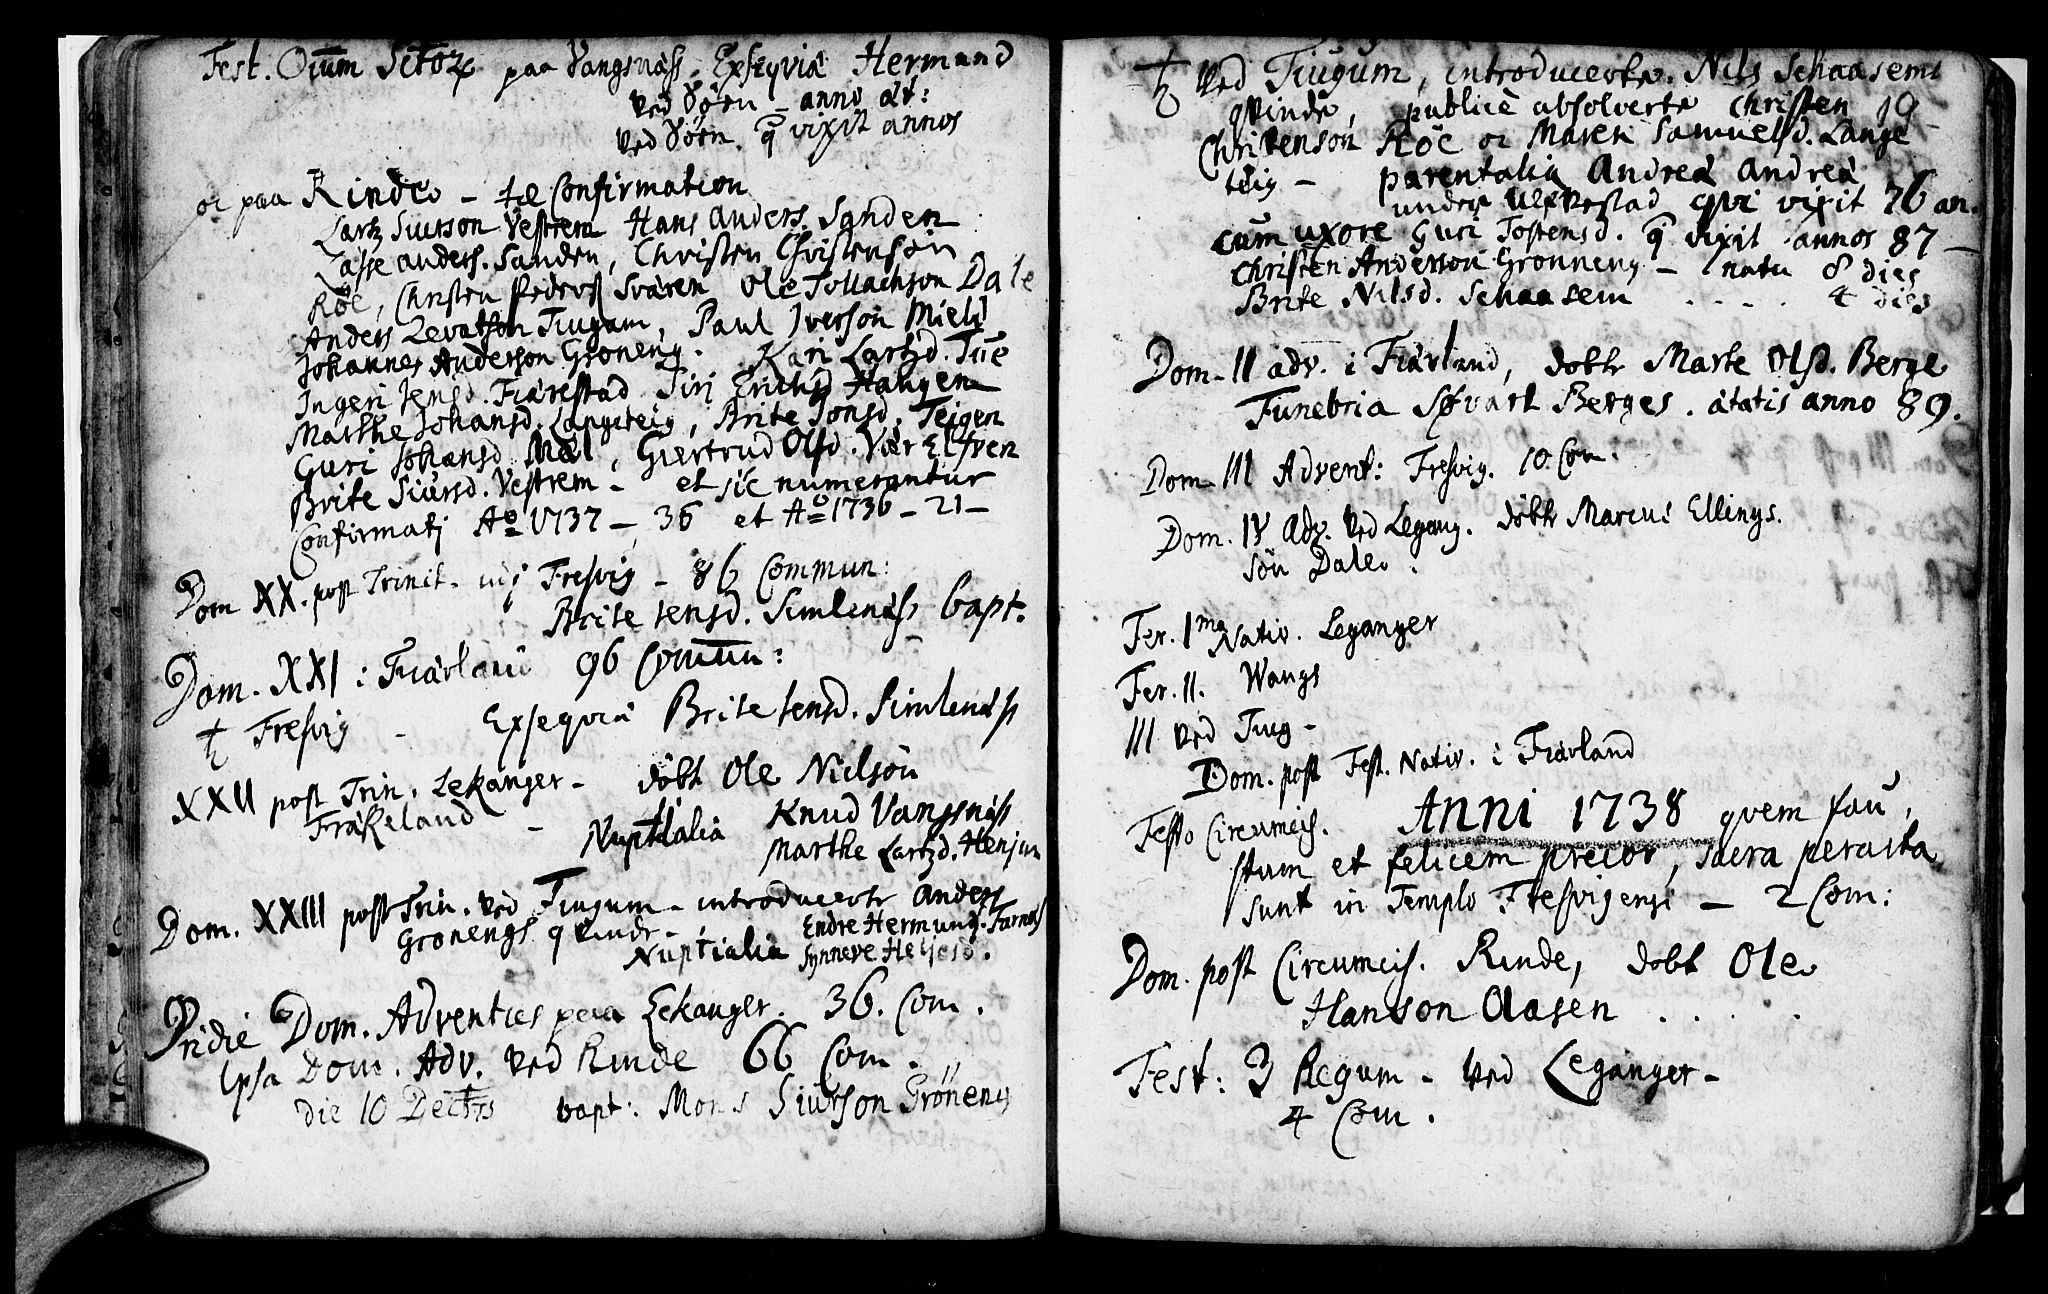 Fest. Oium Sctor paa Vangsnäss. Exseqviæ Hermund
ved Sørn - anno æt:
ved Sørn. q vixit annos
oc paa Rinde - til Confirmation
Lartz Siurson Vestrem Hans Anders. Sanden
Lasse Anders. Sanden, Christen Christenson
Röe, Christen Peders Sværen Ole Tollachson Dale
Anders Levatson Tiugum, Paul Iverson Mield
Johannes Anderson Groneng. Kari Lartzd. Tue
Ingeri Jensd. Fiærestad Siri Erichsd Haugen
Marthe Johansd. Langeteig, Brite Jonsd. Teigen
Guri Johansd Mæl, Giertrud Olsd. Vær Elfven
Brite Siursd. Vestrem - et sic numerantur
Confirmatj Ao 1737 - 36 et Ao 1736 - 21 -
Dom XX. post Trinit. udj Fresvig - 86 Commun:
Brite Jensd. Simlenäss bapt.
Dom. XXI i Fiærland 96 Comun:
Fresvig - Exseqviæ Brite Jensd. Simlenäss
XXII post Trin. Lekanger - döbt Ole Nielsön
Fräkeland - Nuptialia Knud Vangsnäss
Marthe Lartzd. Henjum
Dom. XXIII post Trin. ved Tiugum - introducerte Anders
Gronengs qvinde -
Nuptialia Endre Hermung. Farnäs
Synneve Heljesd.
Pridie Dom. Adventus paa Lekanger. 36. Com.
Ipsa Dom. Adv. ved Rinde 66 Com.
die 10 Dectris bapt: Mons Siurson Gröneng
ved Tiugum, introducerte Nils Schaasems
qvinde, publicè absolverte Christen
Christenson Röe oc Maren Samuelsd. Lange
teig - parentalia Andreæ Andreæ
under Ulvestad qvi vixit 76 an.
cum uxore Guri Tostensd. q vixit annos 87 -
Christen Anderson Gronneng - natu 8 dies
Brite Nilsd. Schaasem . . . . . 4 dies
Dom. II adv. i Fiærland, dobte Marte Olsd. Berge
Funebria Sövart Berges. ætatis anno 89.
Dom. III Advent: Fresvig. 10 Com.
Dom. IV Adv. ved Legang. döbte Marcus Ellings.
sön Dale.
Fer. 1ma Nativ. Leganger
Fer. II. Wangs
III ved Tiug -
Dom. post Fest. Nativ. i Fiærland
Festo Circumcis. Anni 1738 qvem fau,
stum et felicem precor, sacra peracta
sunt in Templo Fresvigensi - 2 Com:
Dom. post Circumcis. Rinde, dobt Ole
Hanson Aasen . . . .
Fest: 3 Regum - ved Leganger -
4 Com.